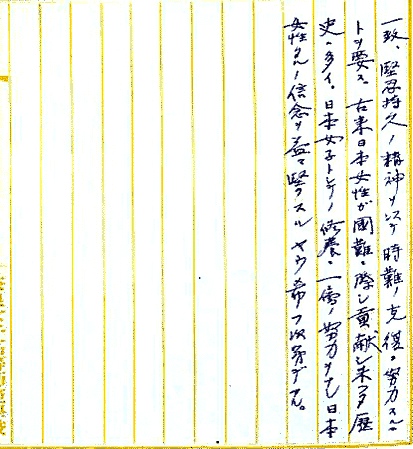 一致、堅忍持久ノ精神ヲ以テ時難ノ克復ニ努力スルコ
トヲ要ス。古来日本女性ガ國難ニ際シ貢献シ来ツタ歴
史ハ多イ。日本女子トシテノ修養ニ一層ノ努力ヲナシ日本
女性タルノ信念ヲ益々堅クスルヤウ希フ次第デアル。